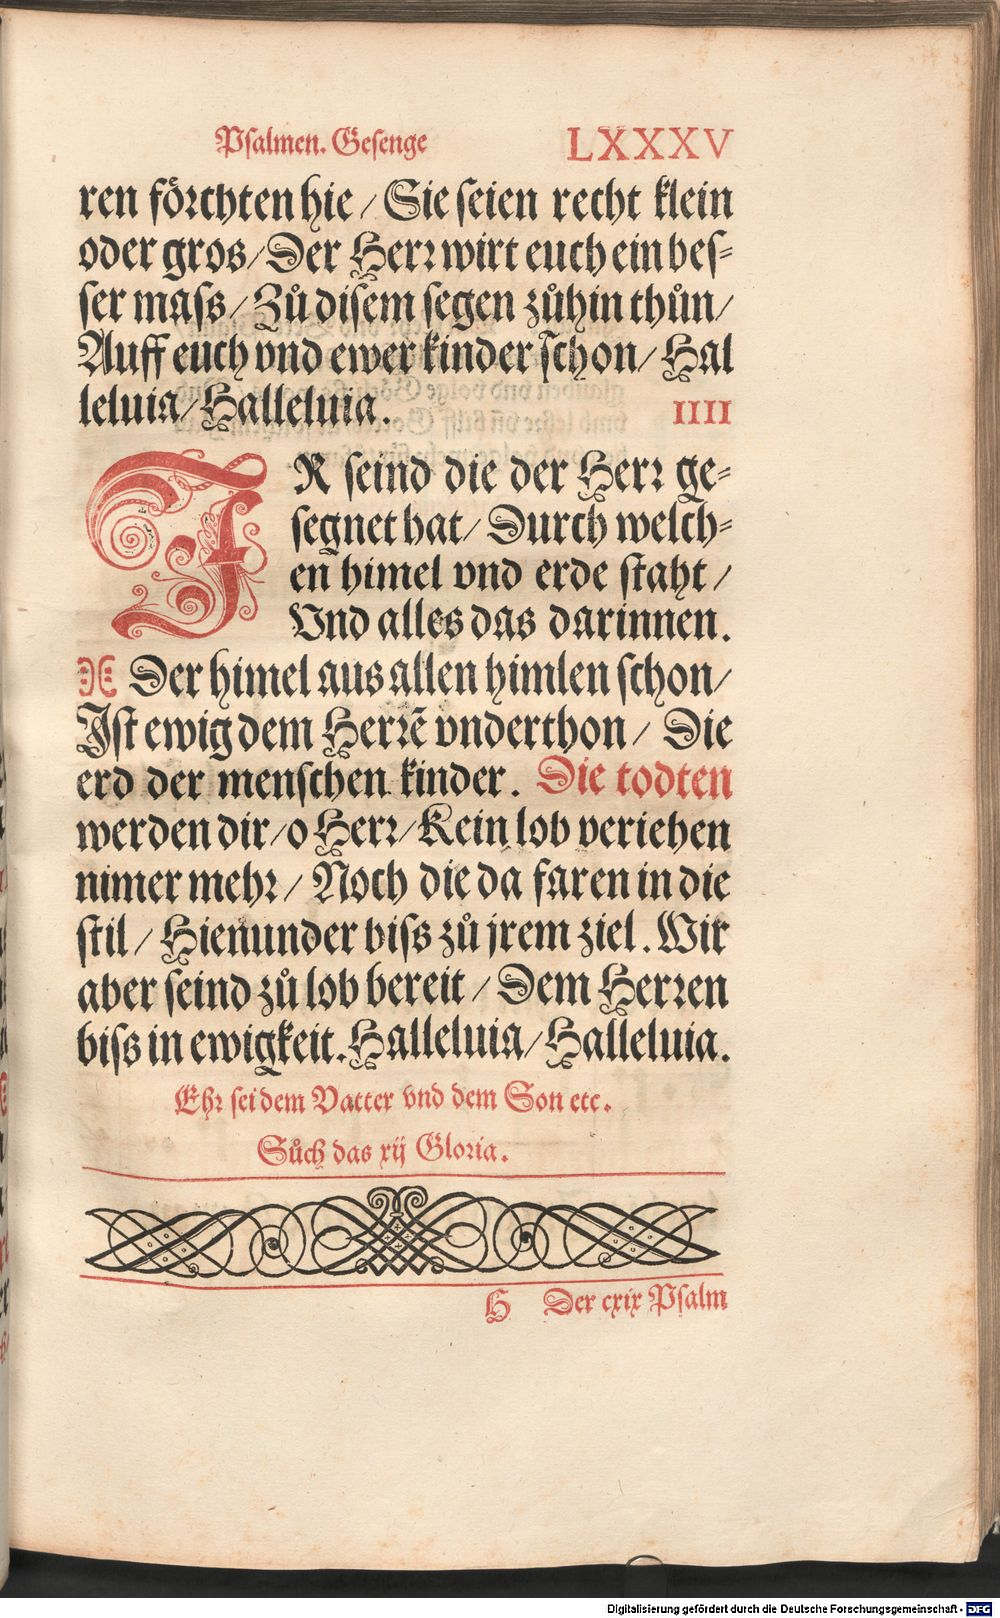 Psalmen. Gesenge LXXXV
ren foͤrchten hie / Sie seien recht klein
oder gros / Der Herr wirt euch ein bes-
ser mass / Zuͦ disem segen zuͦhin thuͦn /
Auff euch vnd ewer kinder schon / Hal
leluia / Halleluia. IIII
IR seind die der Herr ge-
segnet hat / Durch welch-
en himel vnd erde staht /
Vnd alles das darinnen.
Der himel aus allen himlen schon /
Ist ewig dem Herrē vnderthon / Die
erd der menschen kinder. Die todten
werden dir / o Herr / Kein lob veriehen
nimer mehr / Noch die da faren in die
stil / Hienunder biss zuͦ jrem ziel. Wir
aber seind zuͦ lob bereit / Dem Herren
biss in ewigkeit. Halleluia / Halleluia.
Ehr sei dem Vatter vnd dem Son etc.
Suͦch das xij Gloria.
H Der cxix Psalm
Digitalisierung gefördert durch die Deutsche Forschungsgemeinschaft - DFG